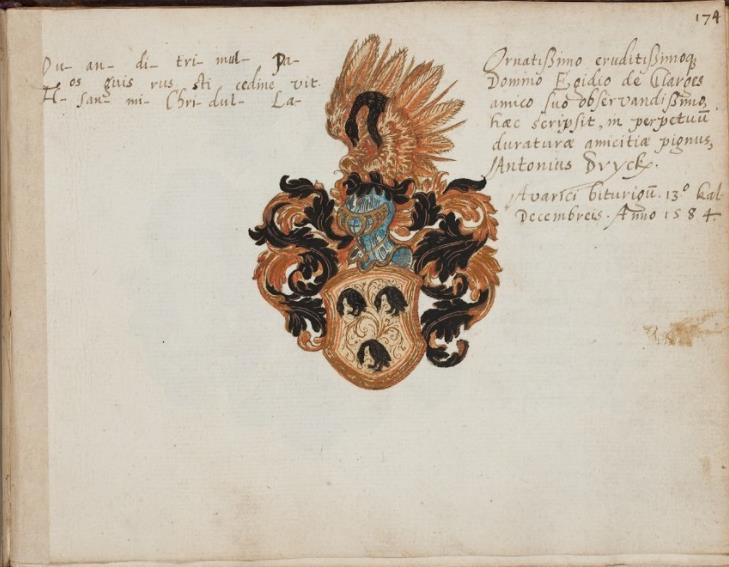 174
Qu- an- di- tri- mul- Pa-
os guis rus sti cedine vit.
H- san- mi- Chri- dul- La-
Ornatißimo eruditißimoq
Domino Egidio de Clarges
amico suo observandißimo,
hæc scripsit, in perpetuū
duraturæ amicitiæ pignus,
Antonius Dryck.
Avarici biturigū. 13º kal
Decembreis. Anno 1584.